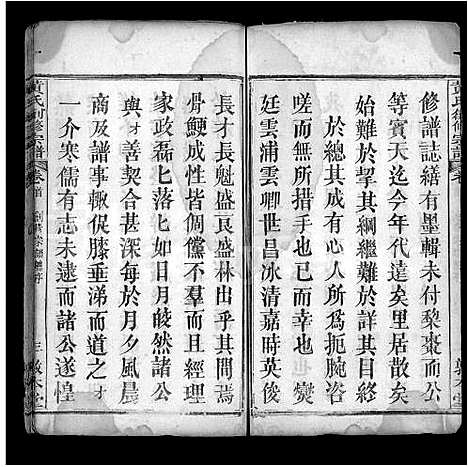 修譜誌繕有墨輯未付棃棗而公
等賓天迄今年代遠矣里居散矣
始難於挈其綱繼難於計其目終
於總其成有心人所為扼腕咨
嗟而無所措手也已而
廷雲浦雲嘂世昌冰清嘉時英俊
長才長魁盛良盛林出乎其間焉
骨鯁成性皆倜儻不羣而且經理
家政磊匕落匕如日月皎然諸公
與才善契合殷殷於月夕風晨
商及譜事輒促膝垂涕而道之才
一介寒儒有志未逮而諸公遂惶
黃氏創修宗譜
卷首
三 敦本堂
黃氏創修宗譜